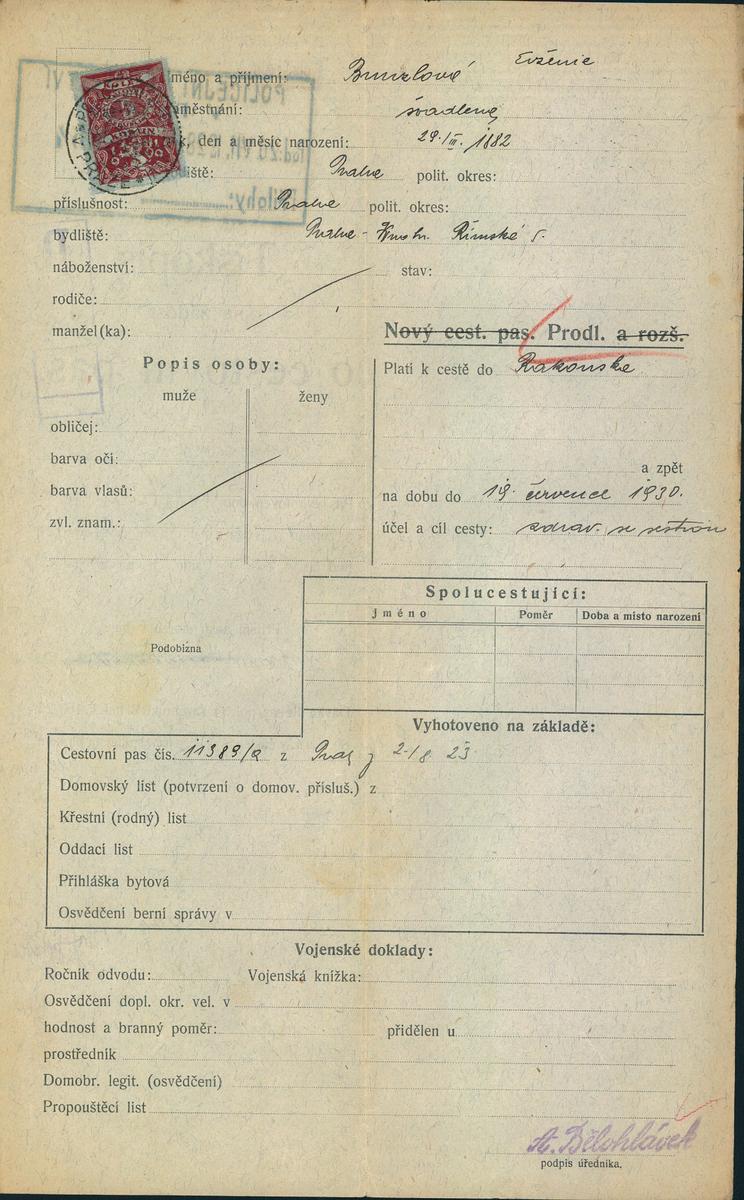 Jméno a příjmení: Bunzlová Evženie
zaměstnání: švadlena
rok, den a měsíc narození: 29. III. 1882
rodiště: Praha polit. okres:
příslušnost: Praha polit. okres:
bydliště: Praha - Římská
náboženství: stav:
rodiče:
manžel(ka):
Nový cest. pas. Prodl. a rozš.
Popis osoby:
muže ženy
obličej:
barva očí:
barva vlasů:
zvl. znam.:
Platí k cestě do Rakouska
a zpět
na dobu do 19. července 1930.
účel a cíl cesty: zdrav. se sestrou
Spolucestující:
jméno Poměr Doba a místo narození
Podobizna
Vyhotoveno na základě:
Cestovní pas čís. 11389/a z 2/8 23
Domovský list (potvrzení o domov. přísluš.) z
Křestní (rodný) list
Oddací list
Přihláška bytová
Osvědčení berní správy v
Vojenské doklady:
Ročník odvodu: Vojenská knížka:
Osvědčení dopl. okr. vel. v
hodnost a branný poměr: přidělen u
prostředník
Domobr. legit. (osvědčení)
Propouštěcí list
A. Bělohlávek
podpis úředníka.